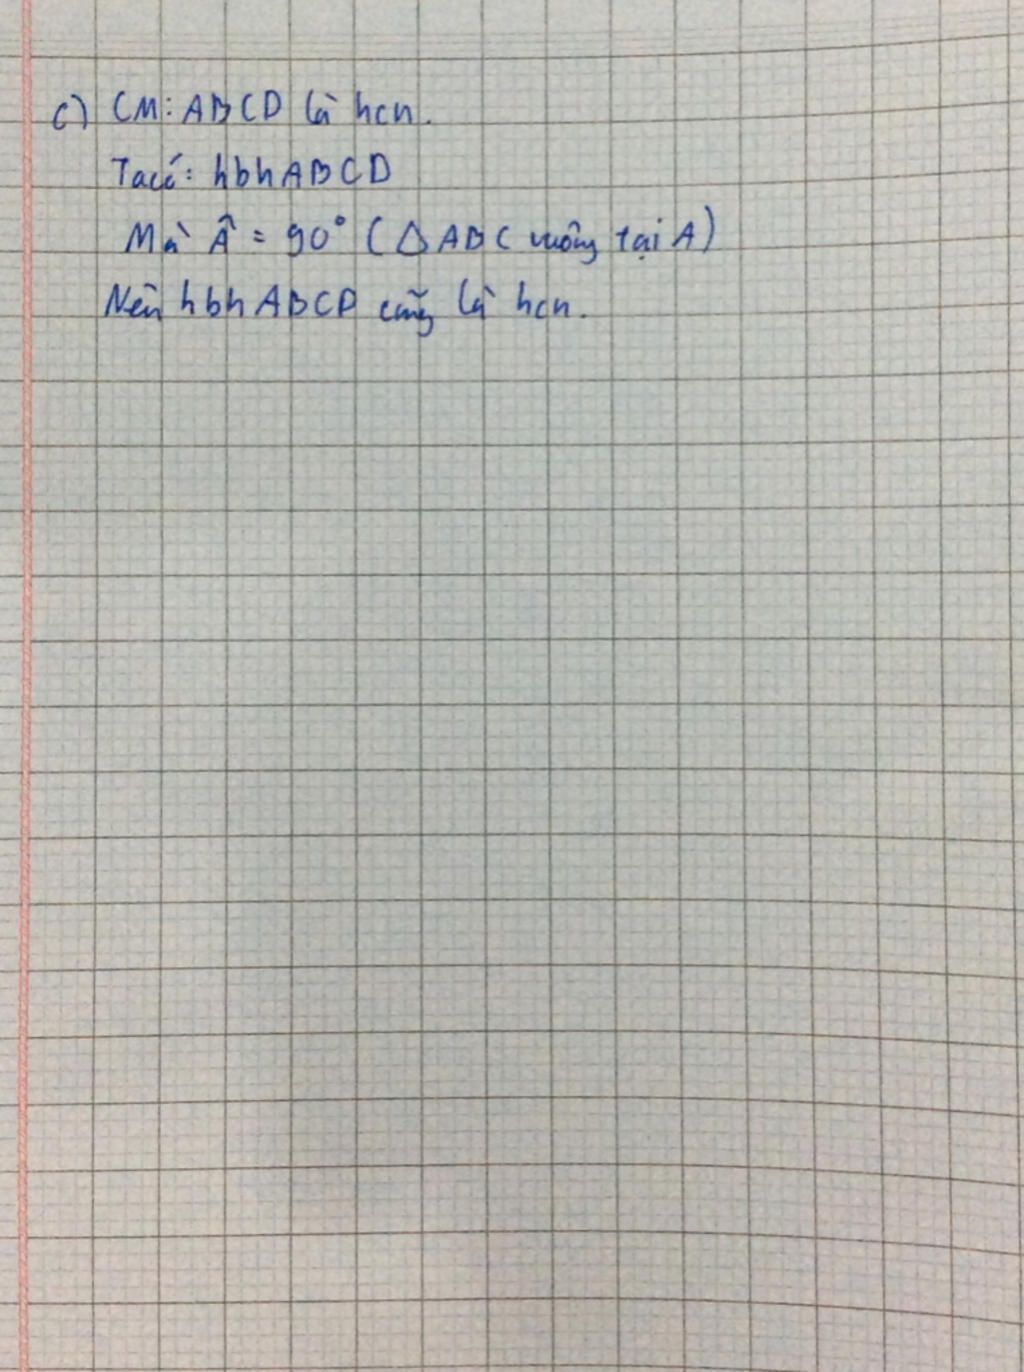 c) CM: ABCD là hcn.
Ta có: hbh ABCD
Mà Â = 90° (△ ABC vuông tại A)
Nên hbh ABCD cũng là hcn.